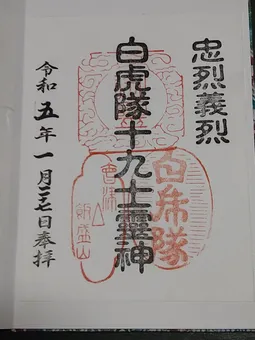 忠烈義烈
白虎隊十九士靈神
令和五年一月二七日奉拝
白虎隊
會津
飯盛山